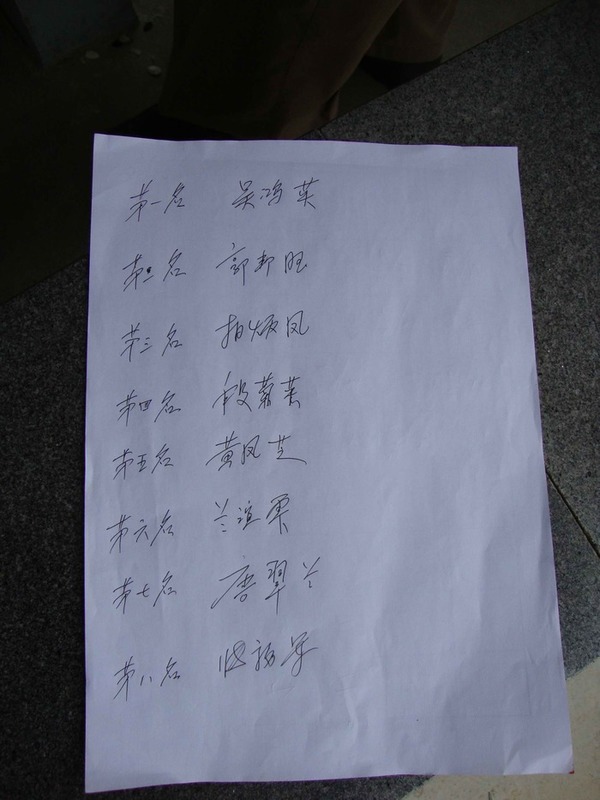 第一名 吴鸿英
第二名 郭邦旺
第三名 柏焕凤
第四名 段菊英
第五名 黄凤芝
第六名 兰谊军
第七名 唐翠兰
第八名